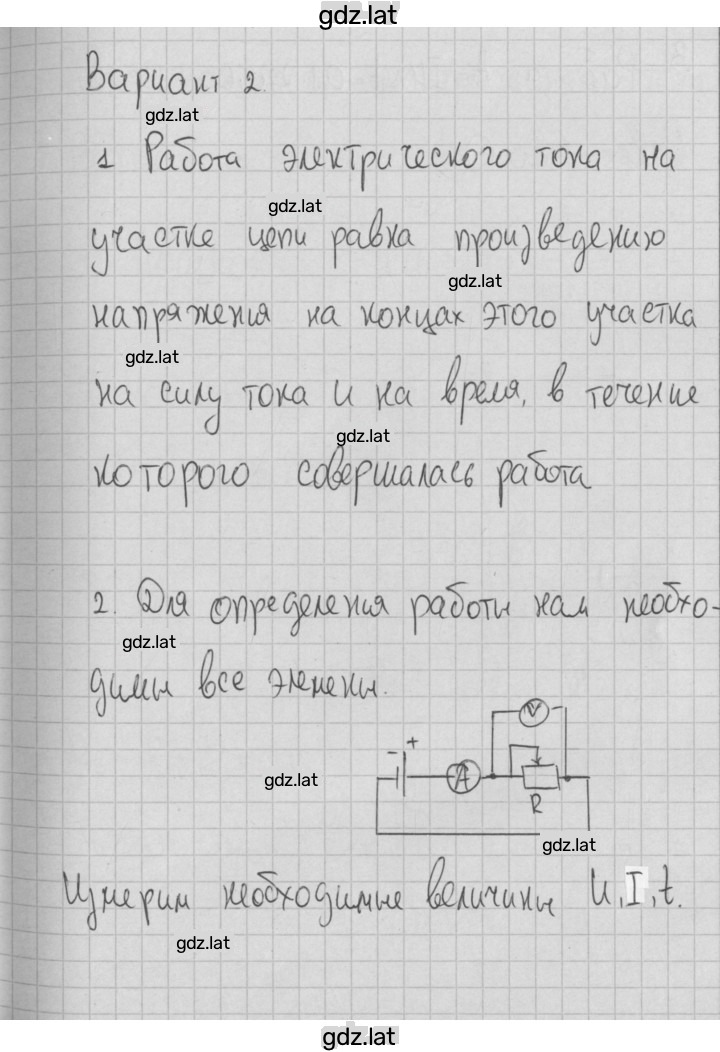 gdz.lat
Вариант 2.
gdz.lat
1 Работа электрического тока на
gdz.lat
участке цепи равна произведению
gdz.lat
напряжения на концах этого участка
gdz.lat
на силу тока и на время, в течение
gdz.lat
которого совершалась работа
2. Для определения работы нам необхо-
gdz.lat
димы все элемены.
V
- +
gdz.lat
A
R
gdz.lat
Измерим необходимые величины U, I, t.
gdz.lat
gdz.lat